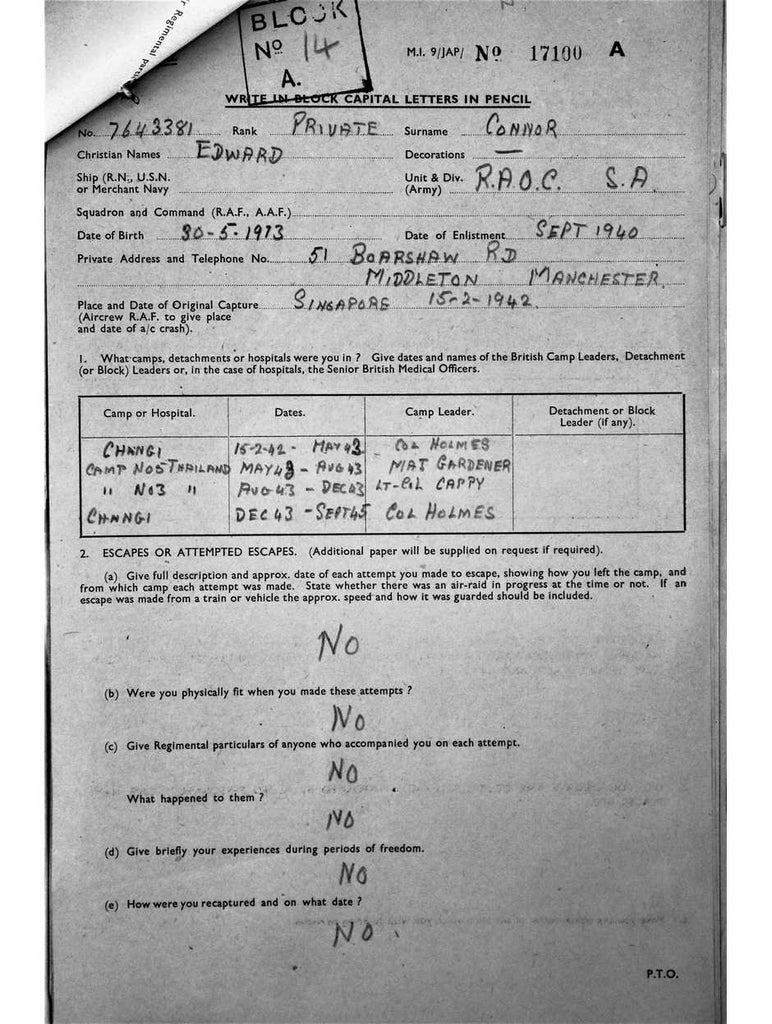 r Regimental parti
BLOCK
Nº 14
A.
M.I. 9/JAP/ Nº 17100 A
WRITE IN BLOCK CAPITAL LETTERS IN PENCIL
No. 7643381 Rank PRIVATE Surname CONNOR
Christian Names EDWARD Decorations —
Ship (R.N., U.S.N. or Merchant Navy
Unit & Div. (Army) R.A.O.C. S.A.
Squadron and Command (R.A.F., A.A.F.)
Date of Birth 30-5-1913 Date of Enlistment SEPT 1940
Private Address and Telephone No. 51 BOARSHAW RD
MIDDLETON MANCHESTER
Place and Date of Original Capture SINGAPORE 15-2-1942
(Aircrew R.A.F. to give place
and date of a/c crash).
1. What camps, detachments or hospitals were you in ? Give dates and names of the British Camp Leaders, Detachment
(or Block) Leaders or, in the case of hospitals, the Senior British Medical Officers.
Camp or Hospital. Dates. Camp Leader. Detachment or Block Leader (if any).
CHANGI 15-2-42 - MAY 43 COL HOLMES
CAMP NO5 THAILAND MAY 43 - AUG 43 MAT GARDENER
" NO3 " AUG 43 - DEC 43 LT-COL CAPPY
CHANGI DEC 43 - SEPT 45 COL HOLMES
2. ESCAPES OR ATTEMPTED ESCAPES. (Additional paper will be supplied on request if required).
(a) Give full description and approx. date of each attempt you made to escape, showing how you left the camp, and
from which camp each attempt was made. State whether there was an air-raid in progress at the time or not. If an
escape was made from a train or vehicle the approx. speed and how it was guarded should be included.
NO
(b) Were you physically fit when you made these attempts ?
NO
(c) Give Regimental particulars of anyone who accompanied you on each attempt.
NO
What happened to them ?
NO
(d) Give briefly your experiences during periods of freedom.
NO
(e) How were you recaptured and on what date ?
NO
P.T.O.